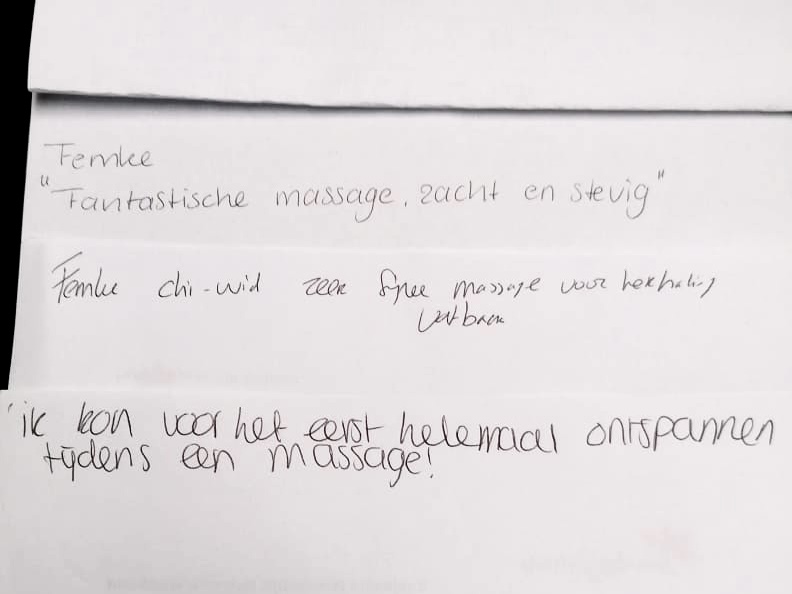 Femke
"Fantastische massage, zacht en stevig"
Femke chi-wid zeer fijne massage voor herhaling
vatbaar
'ik kon voor het eerst helemaal ontspannen
tijdens een massage!